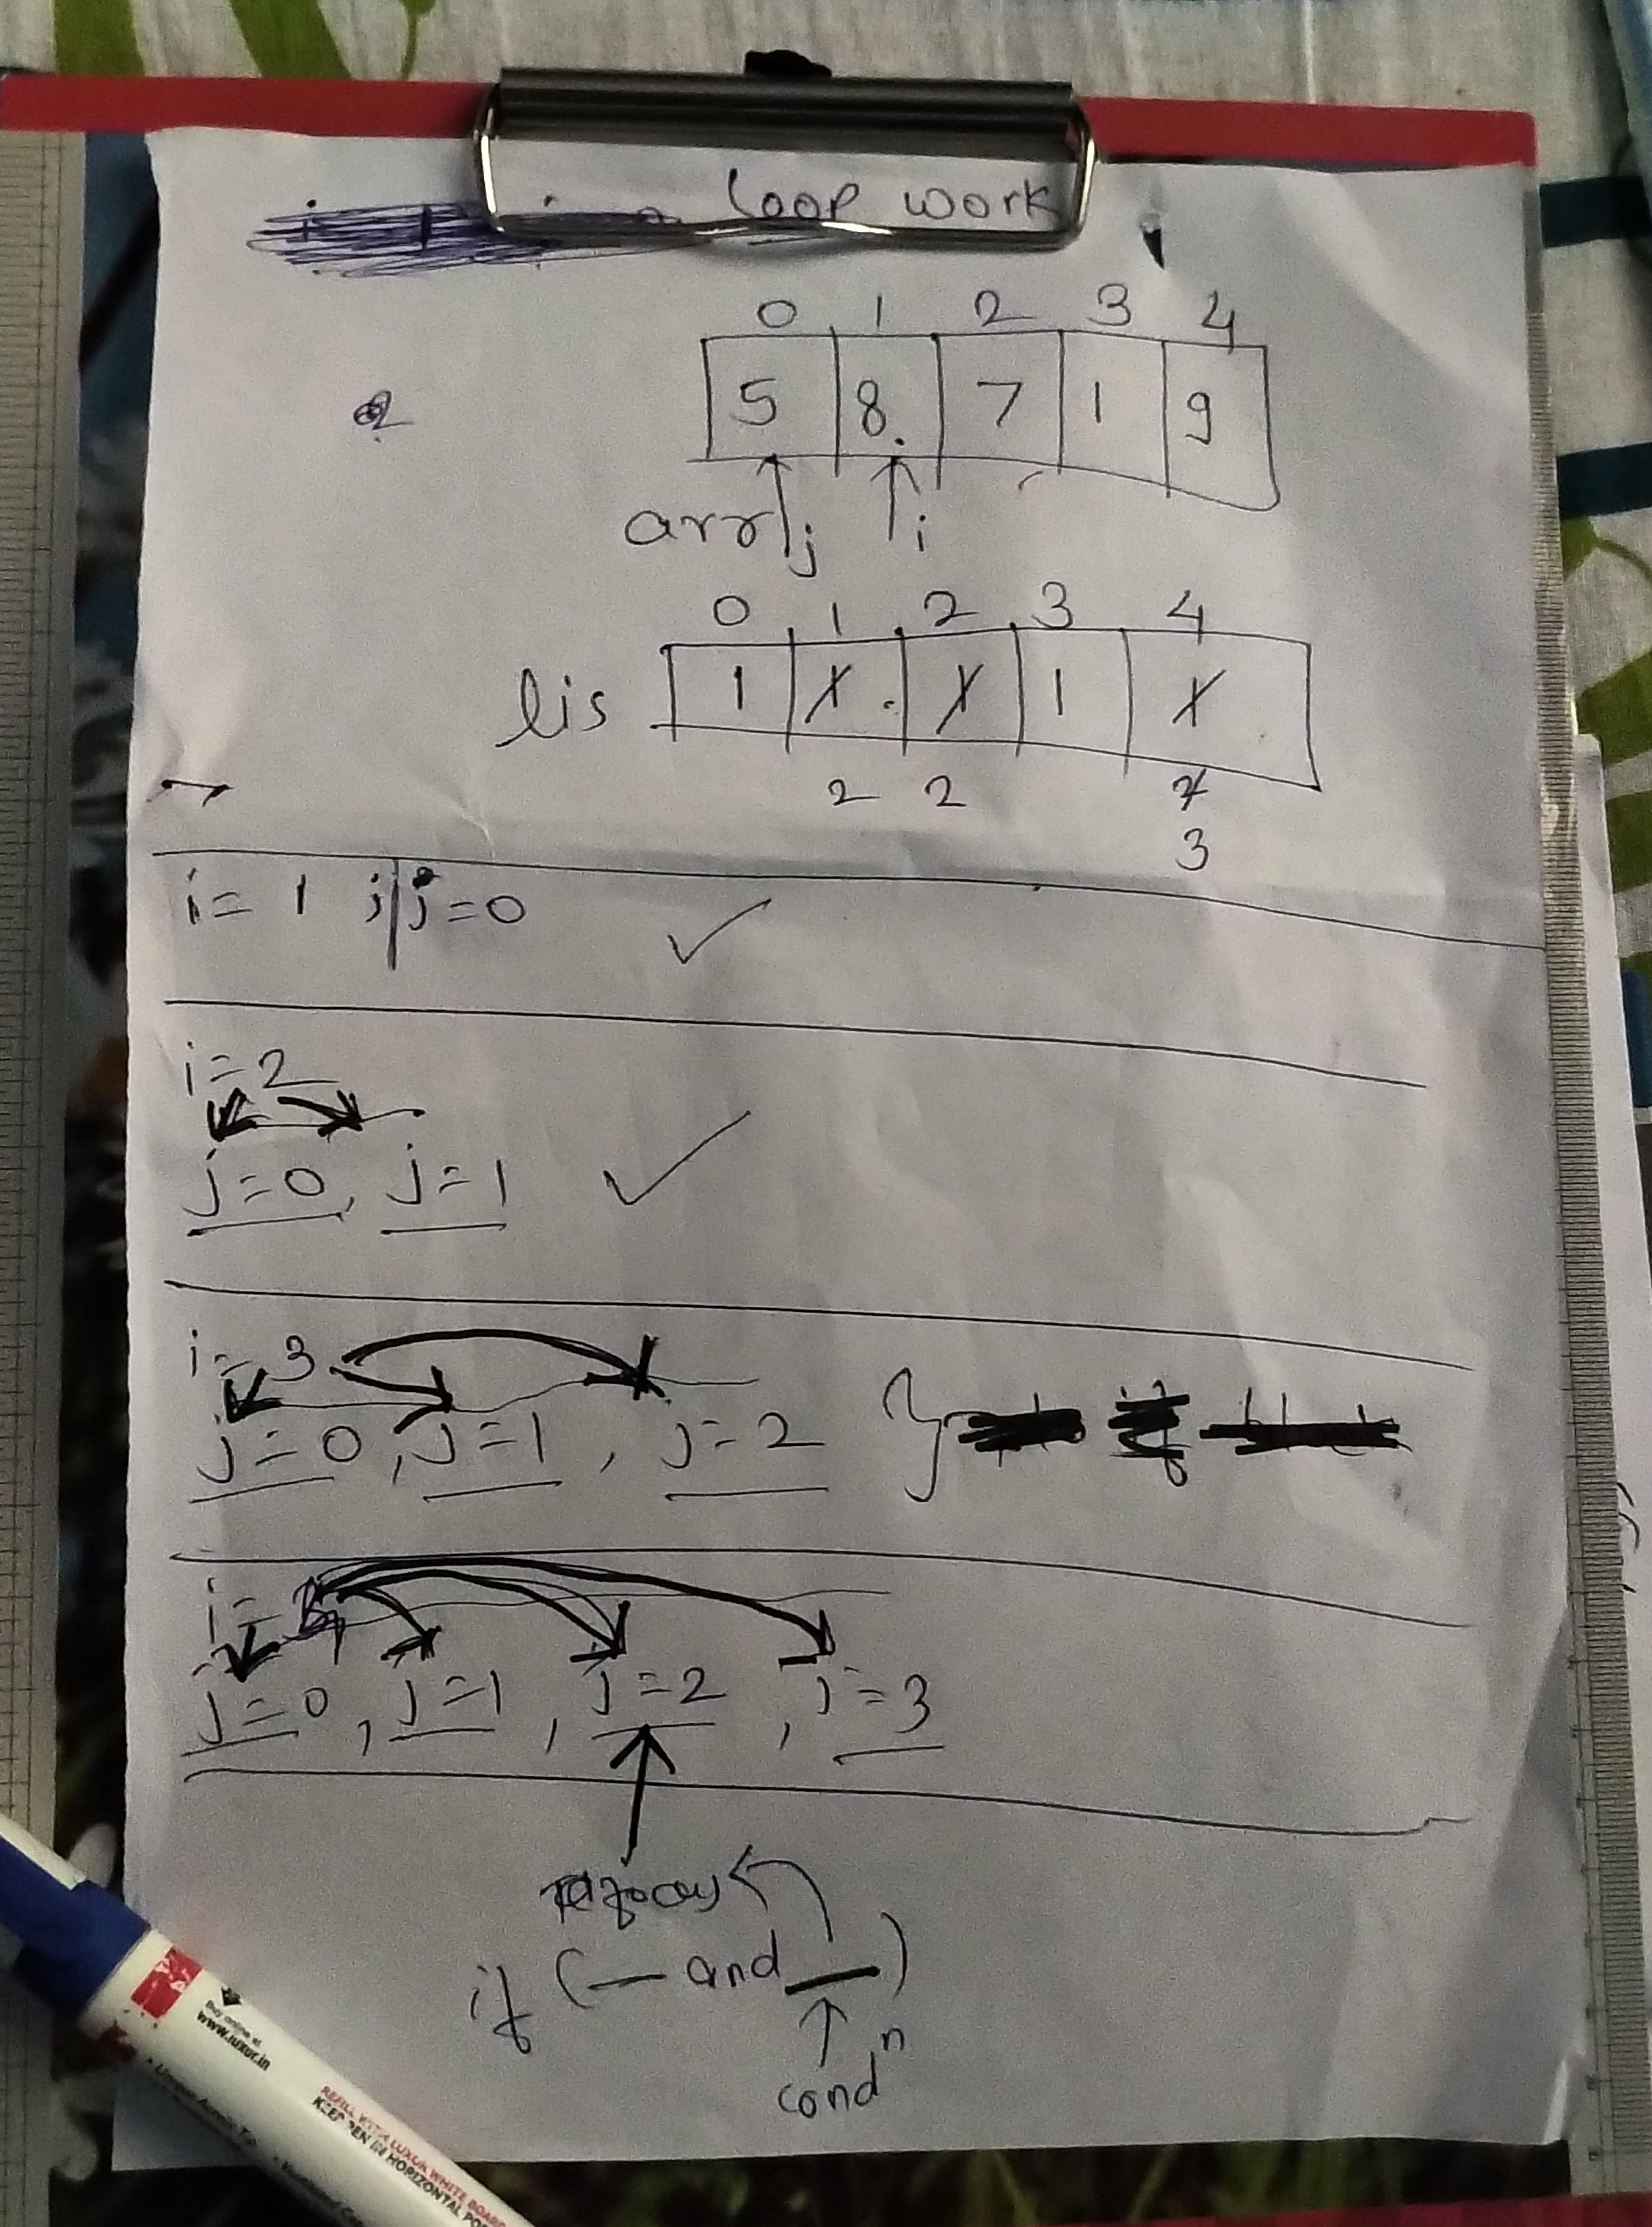 loop work
0 1 2 3 4
5 8 7 1 9
arr j i
0 1 2 3 4
lis 1 1 1 1 1
2 2 2
3
i = 1 ; j = 0
i = 2
j = 0, j = 1
i = 3
j = 0, j = 1, j = 2 }
i = 4
j = 0, j = 1, j = 2, j = 3
if ( — and — )
condⁿ
Buy online at
www.luxor.in
REFILL WITH LUXOR WHITE BOARD
KEEP PEN IN HORIZONTAL